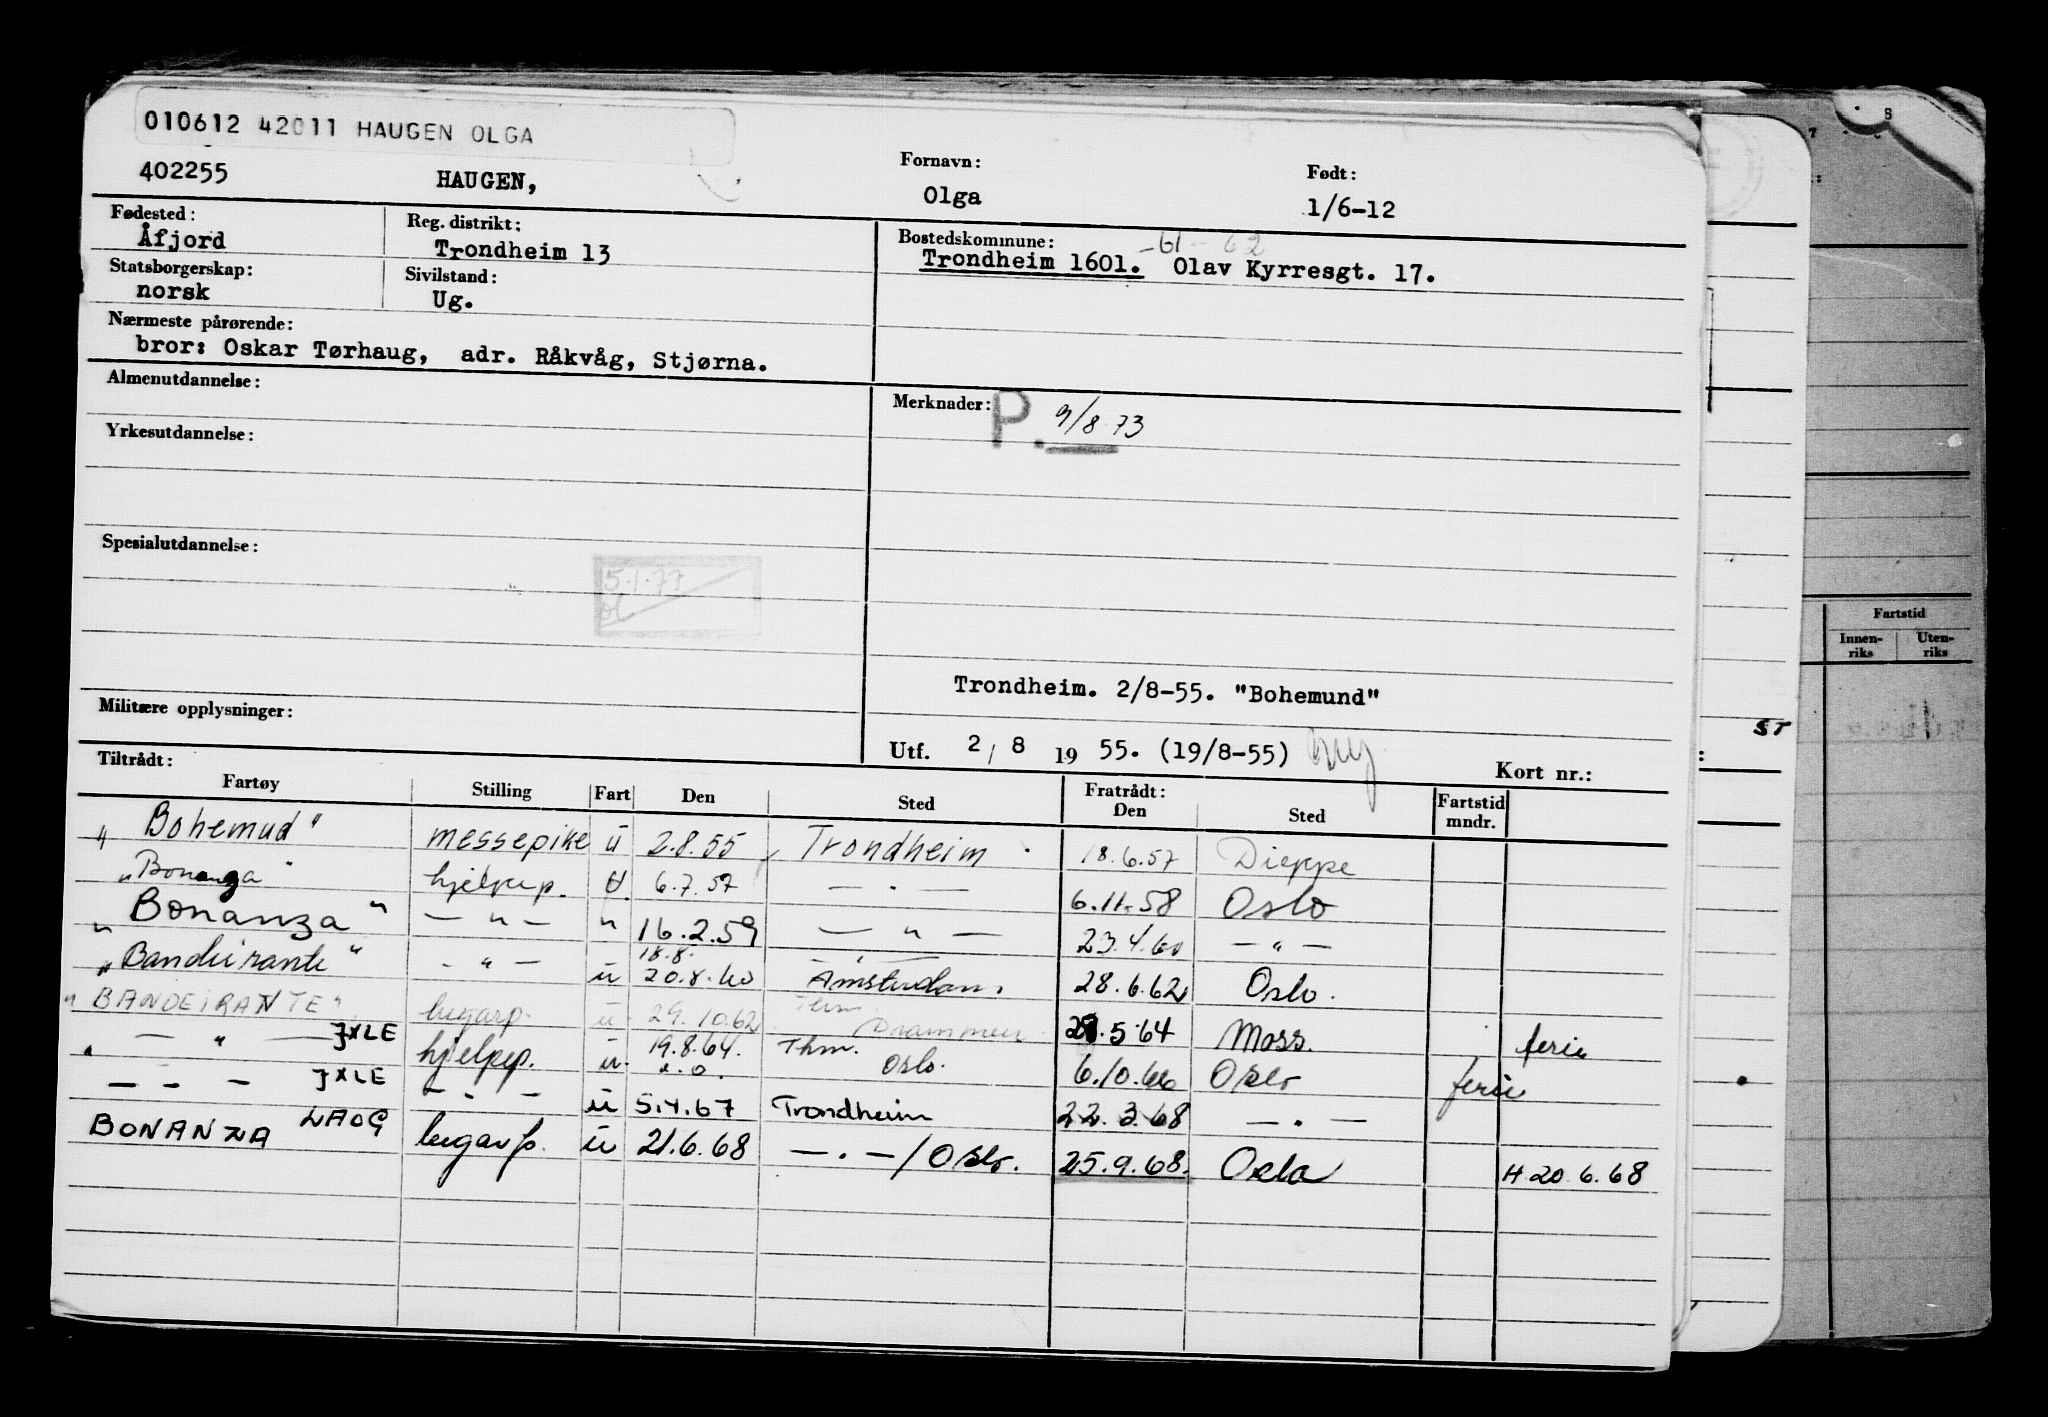 010612 42011 HAUGEN OLGA
402255 HAUGEN, Fornavn: Olga Født: 1/6-12
Fødested: Åfjord Reg. distrikt: Trondheim 13 Bostedskommune: -61-62
Trondheim 1601. Olav Kyrresgt. 17.
Statsborgerskap: norsk Sivilstand: Ug.
Nærmeste pårørende:
bror: Oskar Tørhaug, adr. Råkvåg, Stjørna.
Almenutdannelse:
Merknader: P. 9/8 73
Yrkesutdannelse:
Spesialutdannelse:
5.1.77
Trondheim. 2/8-55. "Bohemund"
Militære opplysninger:
Utf. 2/8 1955. (19/8-55)
Kort nr.:
Tiltrådt:
Fartøy Stilling Fart Den Sted Fratrådt: Den Sted Fartstid mndr.
"Bohemud" messepike u 2.8.55 Trondheim 18.6.57 Dieppe
"Bonanza" hjelpep. u. 6.7.57 — . — 6.11.58 Oslo
"Bonanza" — " — " 16.2.59 — " — 23.4.60 — " —
"Bandeirante" - " — u 18.8. 20.8.60 Amsterdam. 28.6.62 Oslo.
"BANDEIRANTE" lugarp. u 29.10.62 Thm Drammen 28.5.64 Moss. ferie
— " — JXLE hjelpep. u. 19.8.64. Thm. Oslo. 6.10.66 Oslo ferie
— - — JXLE — . — u 5.4.67 Trondheim 22.3.68 — . —
BONANZA LAOG lugarp. u 21.6.68 — . — / Oslo. 25.9.68. Oslo H 20.6.68
Fartstid
Innen-riks Uten-riks
ST